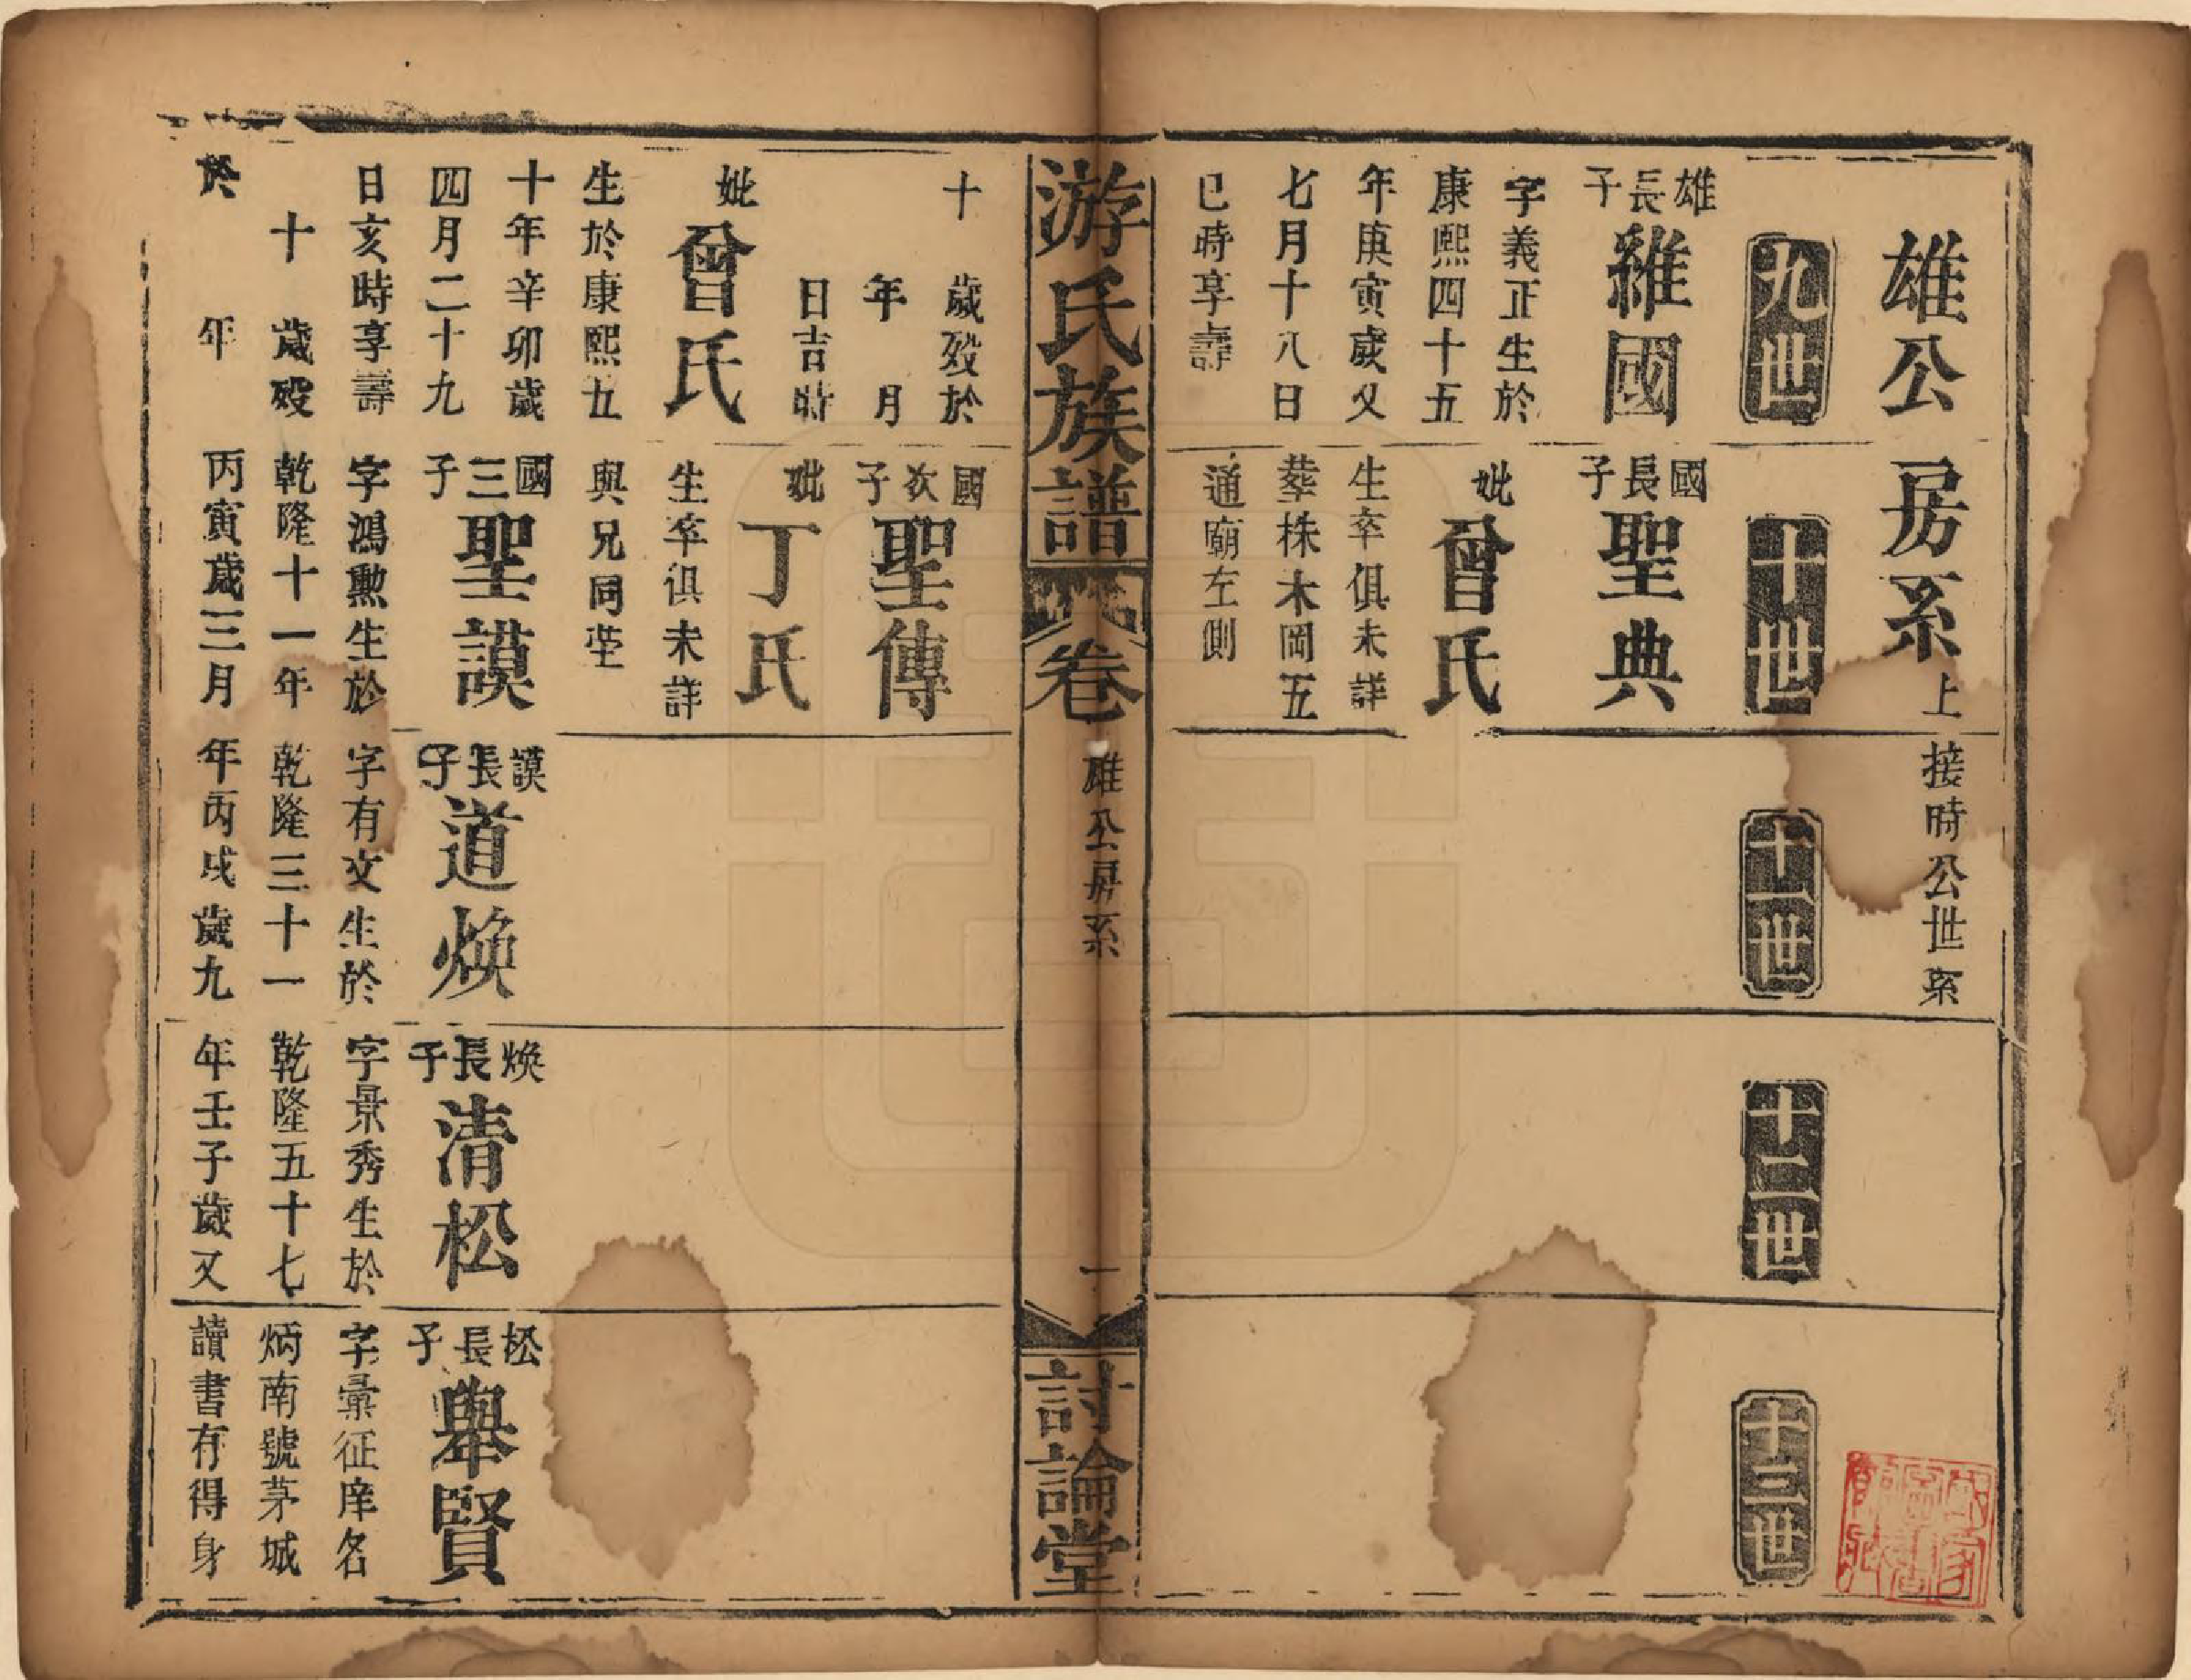 雄公房系上接時公世系
九世
十世
十一世
十二世
十三世
雄長子
維國
字義正生於
康熙四十五
年庚寅歲又
七月十八日
巳時享壽
十歲歿於
年月
日吉時
妣曾氏
生於康熙五
十年辛卯歲
四月二十九
日亥時享壽
十歲歿
於年
國長子
聖典
妣曾氏
生卒俱未詳
葬株木岡五
通廟左側
國次子
聖傳
妣丁氏
生卒俱未詳
與兄同塋
國三子
聖謨
字鴻勲生於
乾隆十一年
丙寅歲三月
謨長子
道煥
字有文生於
乾隆三十一
年丙戌歲九
煥長子
清松
字景秀生於
乾隆五十七
年壬子歲又
松長子
舉賢
字彙征庠名
炳南號茅城
讀書存得身
游氏族譜
卷
雄公房系
一
討論堂